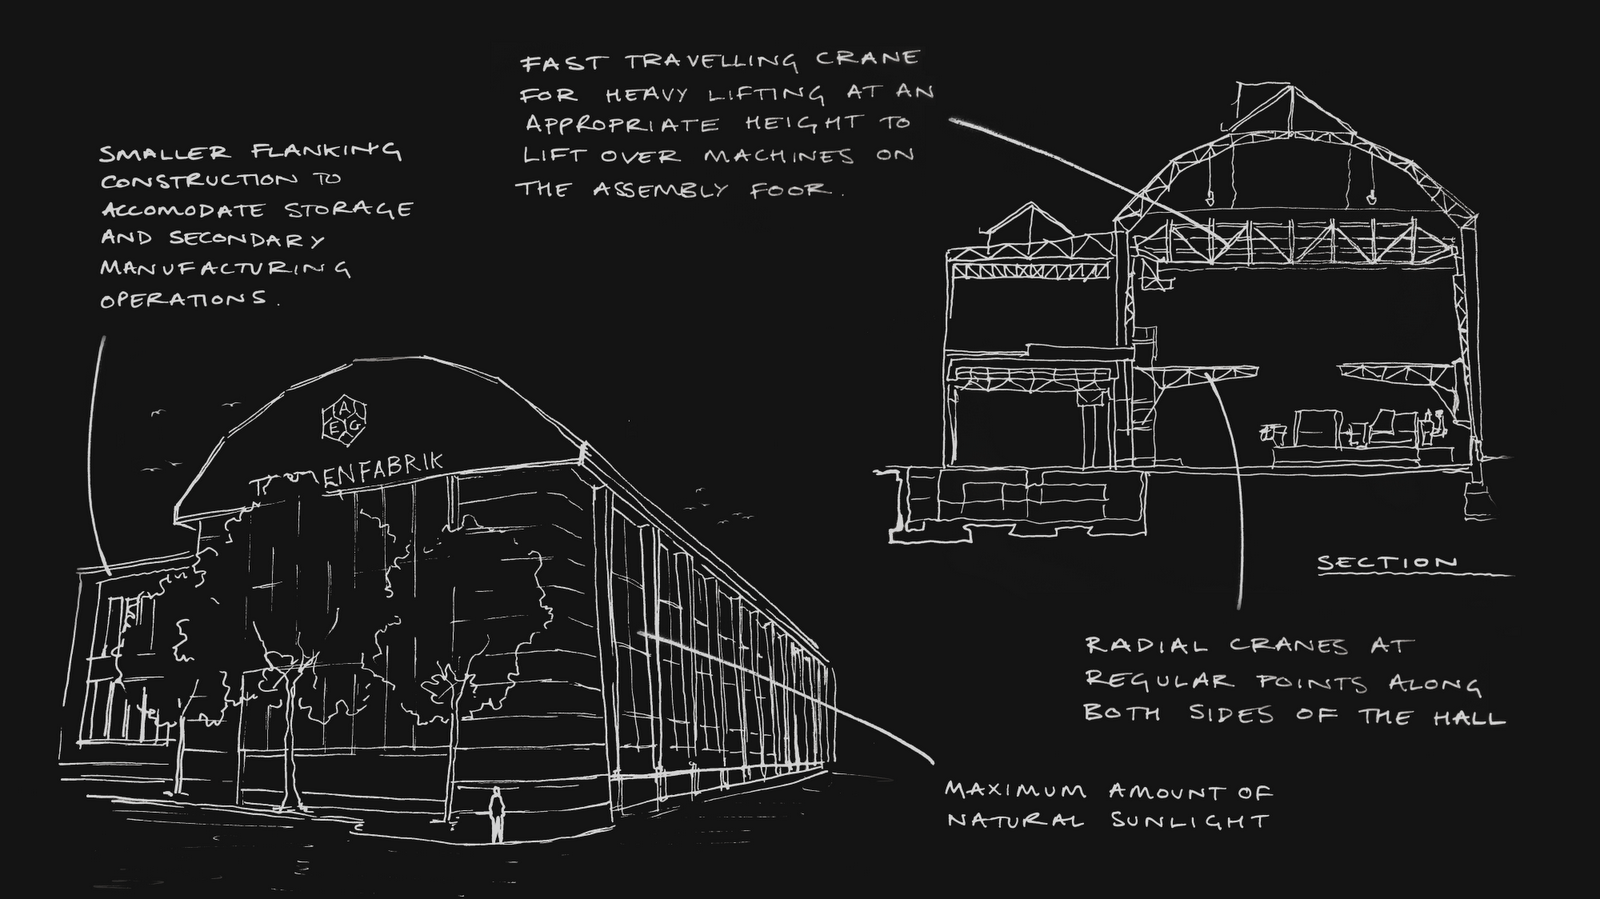 FAST TRAVELLING CRANE
FOR HEAVY LIFTING AT AN
APPROPRIATE HEIGHT TO
LIFT OVER MACHINES ON
THE ASSEMBLY FOOR.
SMALLER FLANKING
CONSTRUCTION TO
ACCOMODATE STORAGE
AND SECONDARY
MANUFACTURING
OPERATIONS.
A
E G
ENFABRIK
SECTION
RADIAL CRANES AT
REGULAR POINTS ALONG
BOTH SIDES OF THE HALL
MAXIMUM AMOUNT OF
NATURAL SUNLIGHT